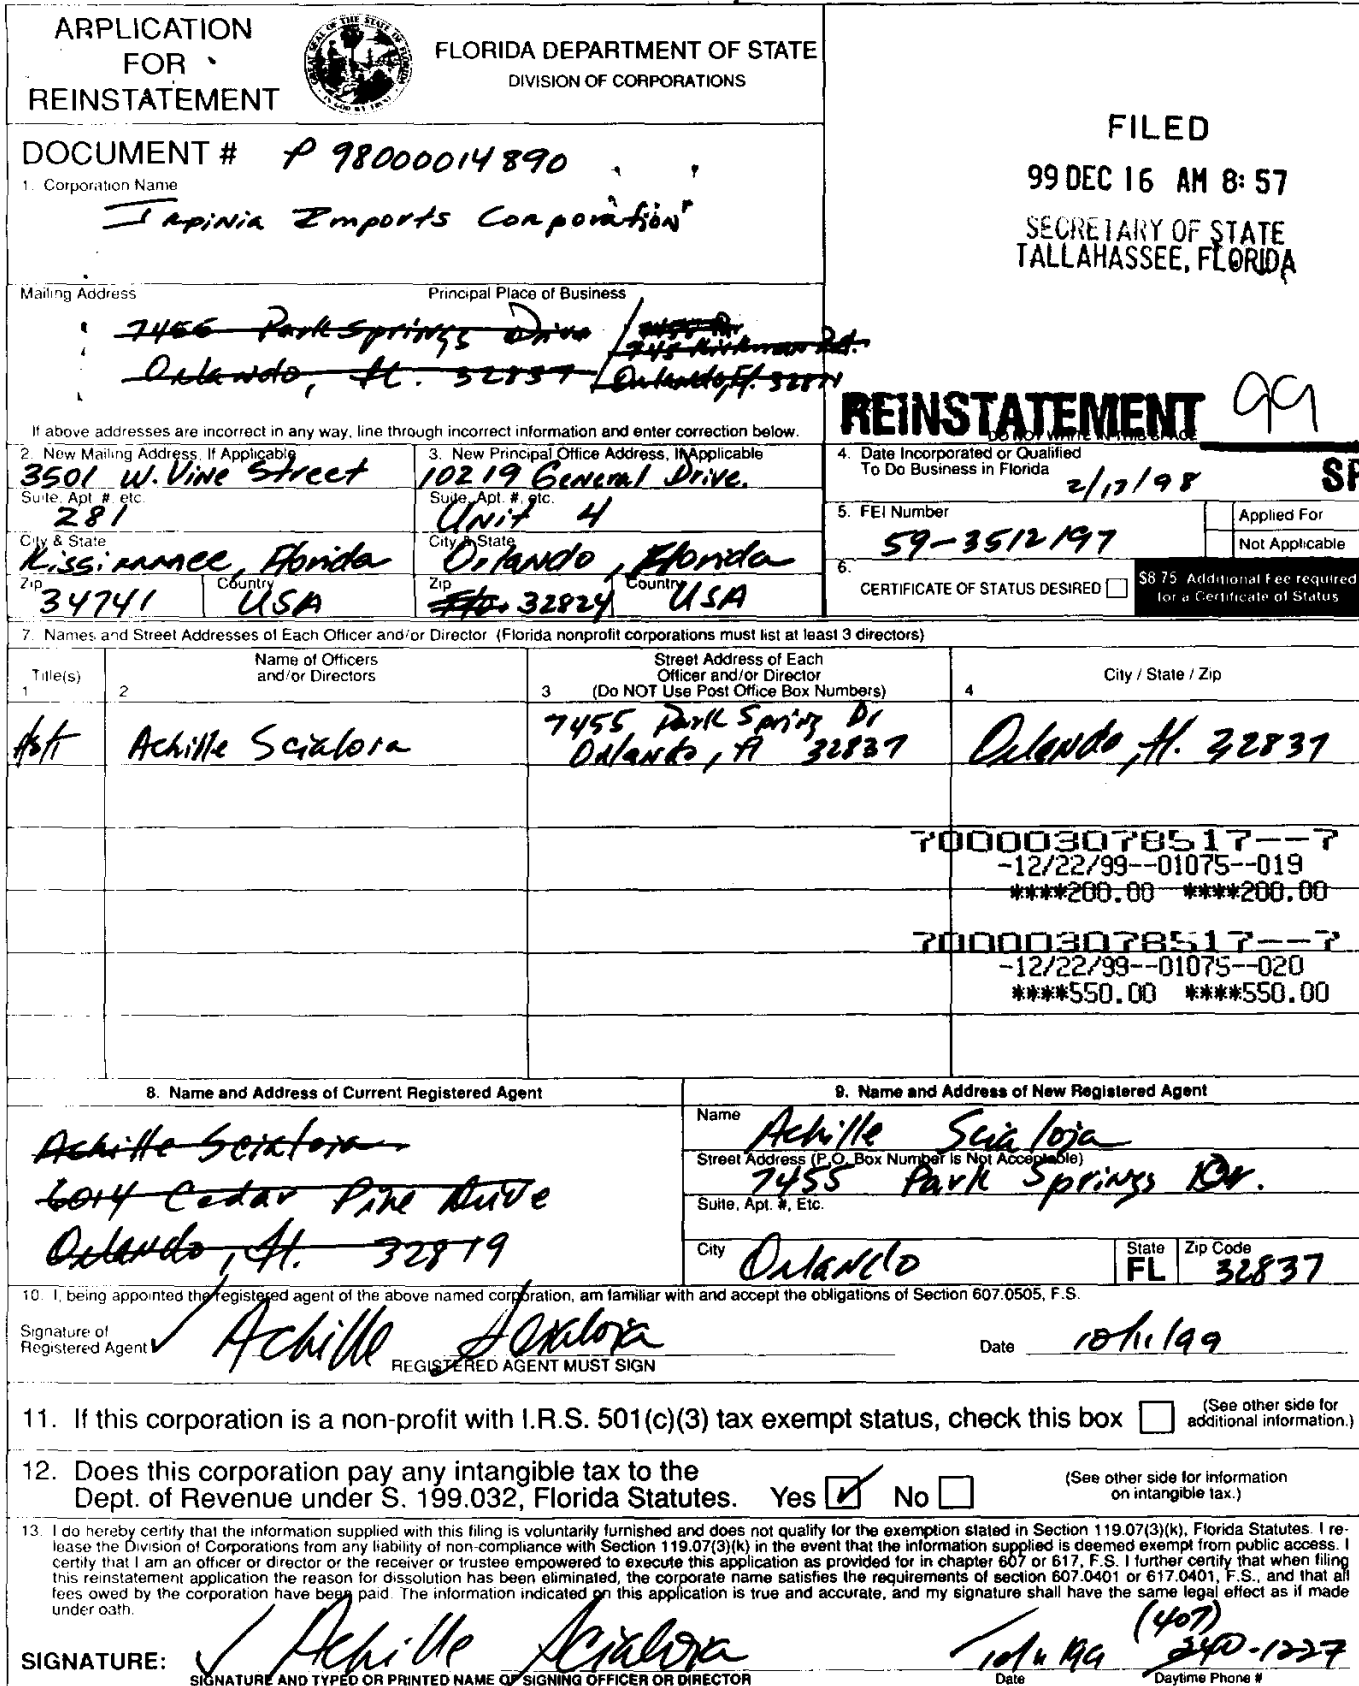 APPLICATION
FOR
REINSTATEMENT
FLORIDA DEPARTMENT OF STATE
DIVISION OF CORPORATIONS
FILED
99 DEC 16 AM 8:57
SECRETARY OF STATE
TALLAHASSEE, FLORIDA
DOCUMENT # P 98000014890
1. Corporation Name
Irpinia Imports Corporation
Mailing Address Principal Place of Business
7455 Park Springs Drive
Orlando, Fl. 32837
Kirkman Rd.
Orlando, Fl.
REINSTATEMENT 99
DO NOT WRITE IN THIS SPACE
If above addresses are incorrect in any way, line through incorrect information and enter correction below.
2. New Mailing Address, If Applicable
3501 W. Vine Street
Suite, Apt. #, etc.
281
City & State
Kissimmee, Florida
Zip 34741 Country USA
3. New Principal Office Address, If Applicable
10219 General Drive.
Suite, Apt. #, etc.
Unit 4
City & State
Orlando, Florida
Zip 32824 Country USA
4. Date Incorporated or Qualified
To Do Business in Florida
2/17/98
5. FEI Number
59-3512197
Applied For
Not Applicable
6.
CERTIFICATE OF STATUS DESIRED
$8.75 Additional Fee required
for a Certificate of Status
7. Names and Street Addresses of Each Officer and/or Director (Florida nonprofit corporations must list at least 3 directors)
Title(s)
1
Name of Officers
and/or Directors
2
Street Address of Each
Officer and/or Director
3 (Do NOT Use Post Office Box Numbers)
City / State / Zip
4
Achille Scialoia
7455 Park Spring Dr
Orlando, Fl 32837
Orlando, Fl. 32837
700003078517--7
-12/22/99--01075--019
****200.00 ****200.00
700003078517--7
-12/22/99--01075--020
****550.00 ****550.00
8. Name and Address of Current Registered Agent
Achille Scialoia
6014 Cedar Pine Drive
Orlando, Fl. 32819
9. Name and Address of New Registered Agent
Name Achille Scialoia
Street Address (P.O. Box Number is Not Acceptable)
7455 Park Springs Dr.
Suite, Apt. #, Etc.
City Orlando State FL Zip Code 32837
10. I, being appointed the registered agent of the above named corporation, am familiar with and accept the obligations of Section 607.0505, F.S.
Signature of
Registered Agent Achille Scialoia Date 10/11/99
REGISTERED AGENT MUST SIGN
11. If this corporation is a non-profit with I.R.S. 501(c)(3) tax exempt status, check this box
(See other side for
additional information.)
12. Does this corporation pay any intangible tax to the
Dept. of Revenue under S. 199.032, Florida Statutes. Yes No
(See other side for information
on intangible tax.)
13. I do hereby certify that the information supplied with this filing is voluntarily furnished and does not qualify for the exemption stated in Section 119.07(3)(k), Florida Statutes. I re-
lease the Division of Corporations from any liability of non-compliance with Section 119.07(3)(k) in the event that the information supplied is deemed exempt from public access. I
certify that I am an officer or director or the receiver or trustee empowered to execute this application as provided for in chapter 607 or 617, F.S. I further certify that when filing
this reinstatement application the reason for dissolution has been eliminated, the corporate name satisfies the requirements of section 607.0401 or 617.0401, F.S., and that all
fees owed by the corporation have been paid. The information indicated on this application is true and accurate, and my signature shall have the same legal effect as if made
under oath.
SIGNATURE: Achille Scialoia 10/11/99 (407) 240-1227
SIGNATURE AND TYPED OR PRINTED NAME OF SIGNING OFFICER OR DIRECTOR Date Daytime Phone #